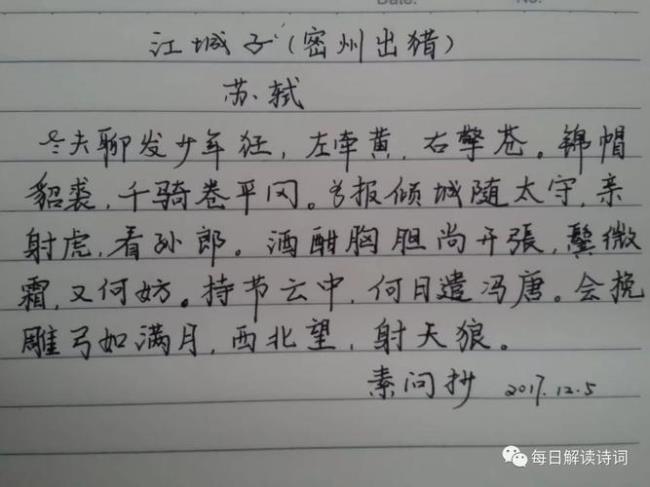 Date:
No.
江城子（密州出猎）
苏轼
老夫聊发少年狂，左牵黄，右擎苍。锦帽
貂裘，千骑卷平冈。为报倾城随太守，亲
射虎，看孙郎。酒酣胸胆尚开張，鬓微
霜，又何妨。持节云中，何日遣冯唐。会挽
雕弓如满月，西北望，射天狼。
素问抄 2017.12.5
每日解读诗词